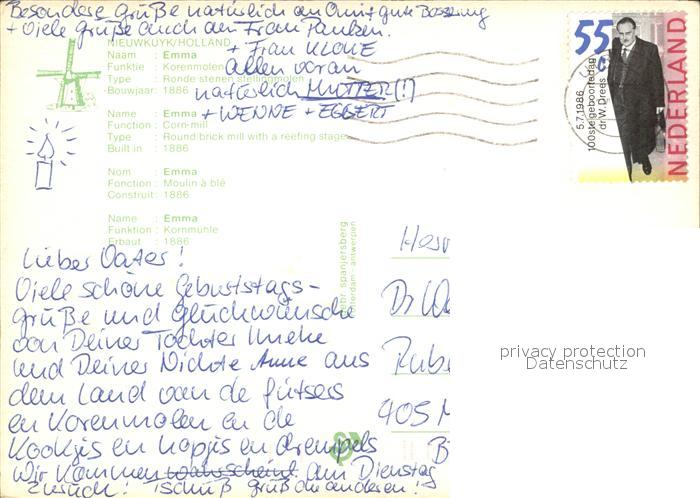 Besondere Grüße natürlich an Omi + gute Besserung
+ Viele Grüße auch an Frau Paulsen.
+ Frau KLOWE
Allen voran
natürlich MUTTER (!)
+ WENNE + EGBERT
NIEUWKUYK/HOLLAND
Naam : Emma
Funktie : Korenmolen
Type : Ronde stenen stellingmolen
Bouwjaar: 1886
Name : Emma
Function : Corn-mill
Type : Round brick mill with a reefing stage
Built in : 1886
Nom : Emma
Fonction : Moulin à blé
Construit: 1886
Name : Emma
Funktion : Kornmühle
Erbaut : 1886
55 c
5.7.1986
100ste geboortedag
dr W. Drees
NEDERLAND
spanjersberg
rotterdam - antwerpen
Lieber Vater!
Viele schöne Geburtstags-
grüße und Glückwünsche
von Deiner Tochter Imeke
und Deiner Nichte Anne aus
dem Land van de fiitsers
en Korenmolen en de
Kookjis en hapjis en drempels
Wir kommen wahrscheinl. am Dienstag
zurück! Tschüß grüß die anderen!
Herr
Dr
Rube
405 M
privacy protection
Datenschutz